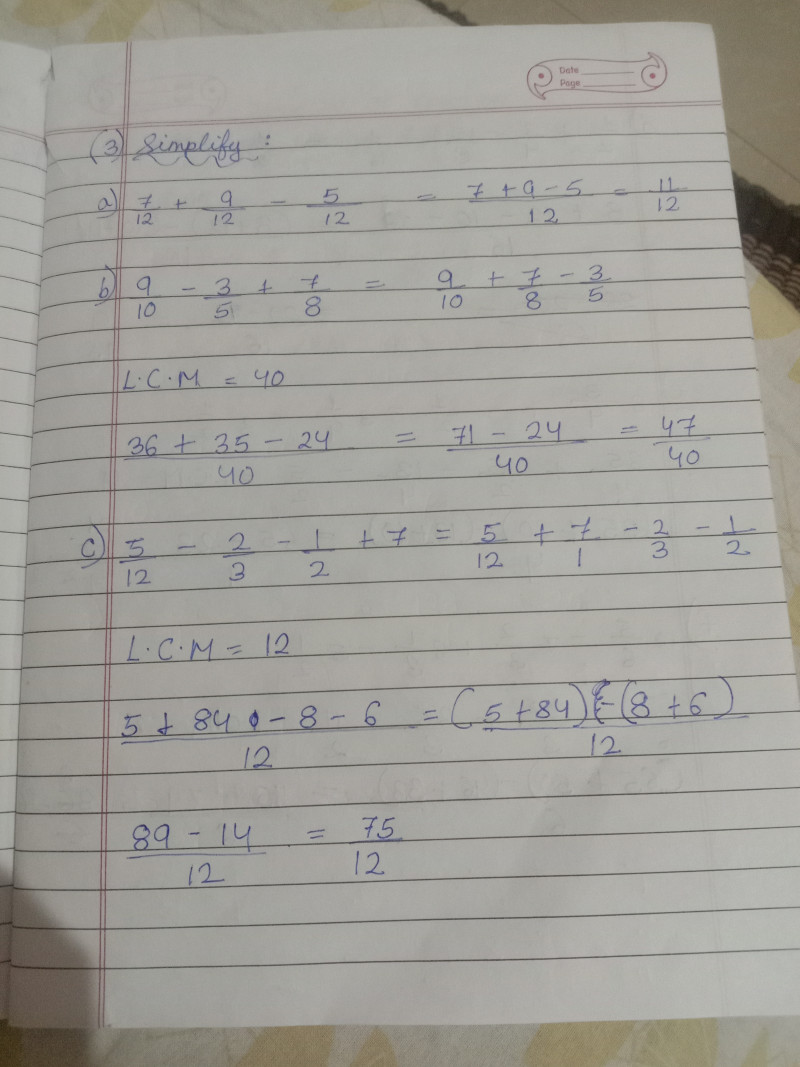 Date
Page
(3) Simplify :
a) 7/12 + 9/12 - 5/12 = (7 + 9 - 5)/12 = 11/12
b) 9/10 - 3/5 + 7/8 = 9/10 + 7/8 - 3/5
L.C.M = 40
(36 + 35 - 24)/40 = (71 - 24)/40 = 47/40
c) 5/12 - 2/3 - 1/2 + 7 = 5/12 + 7/1 - 2/3 - 1/2
L.C.M = 12
(5 + 84 - 8 - 6)/12 = ((5 + 84) - (8 + 6))/12
(89 - 14)/12 = 75/12